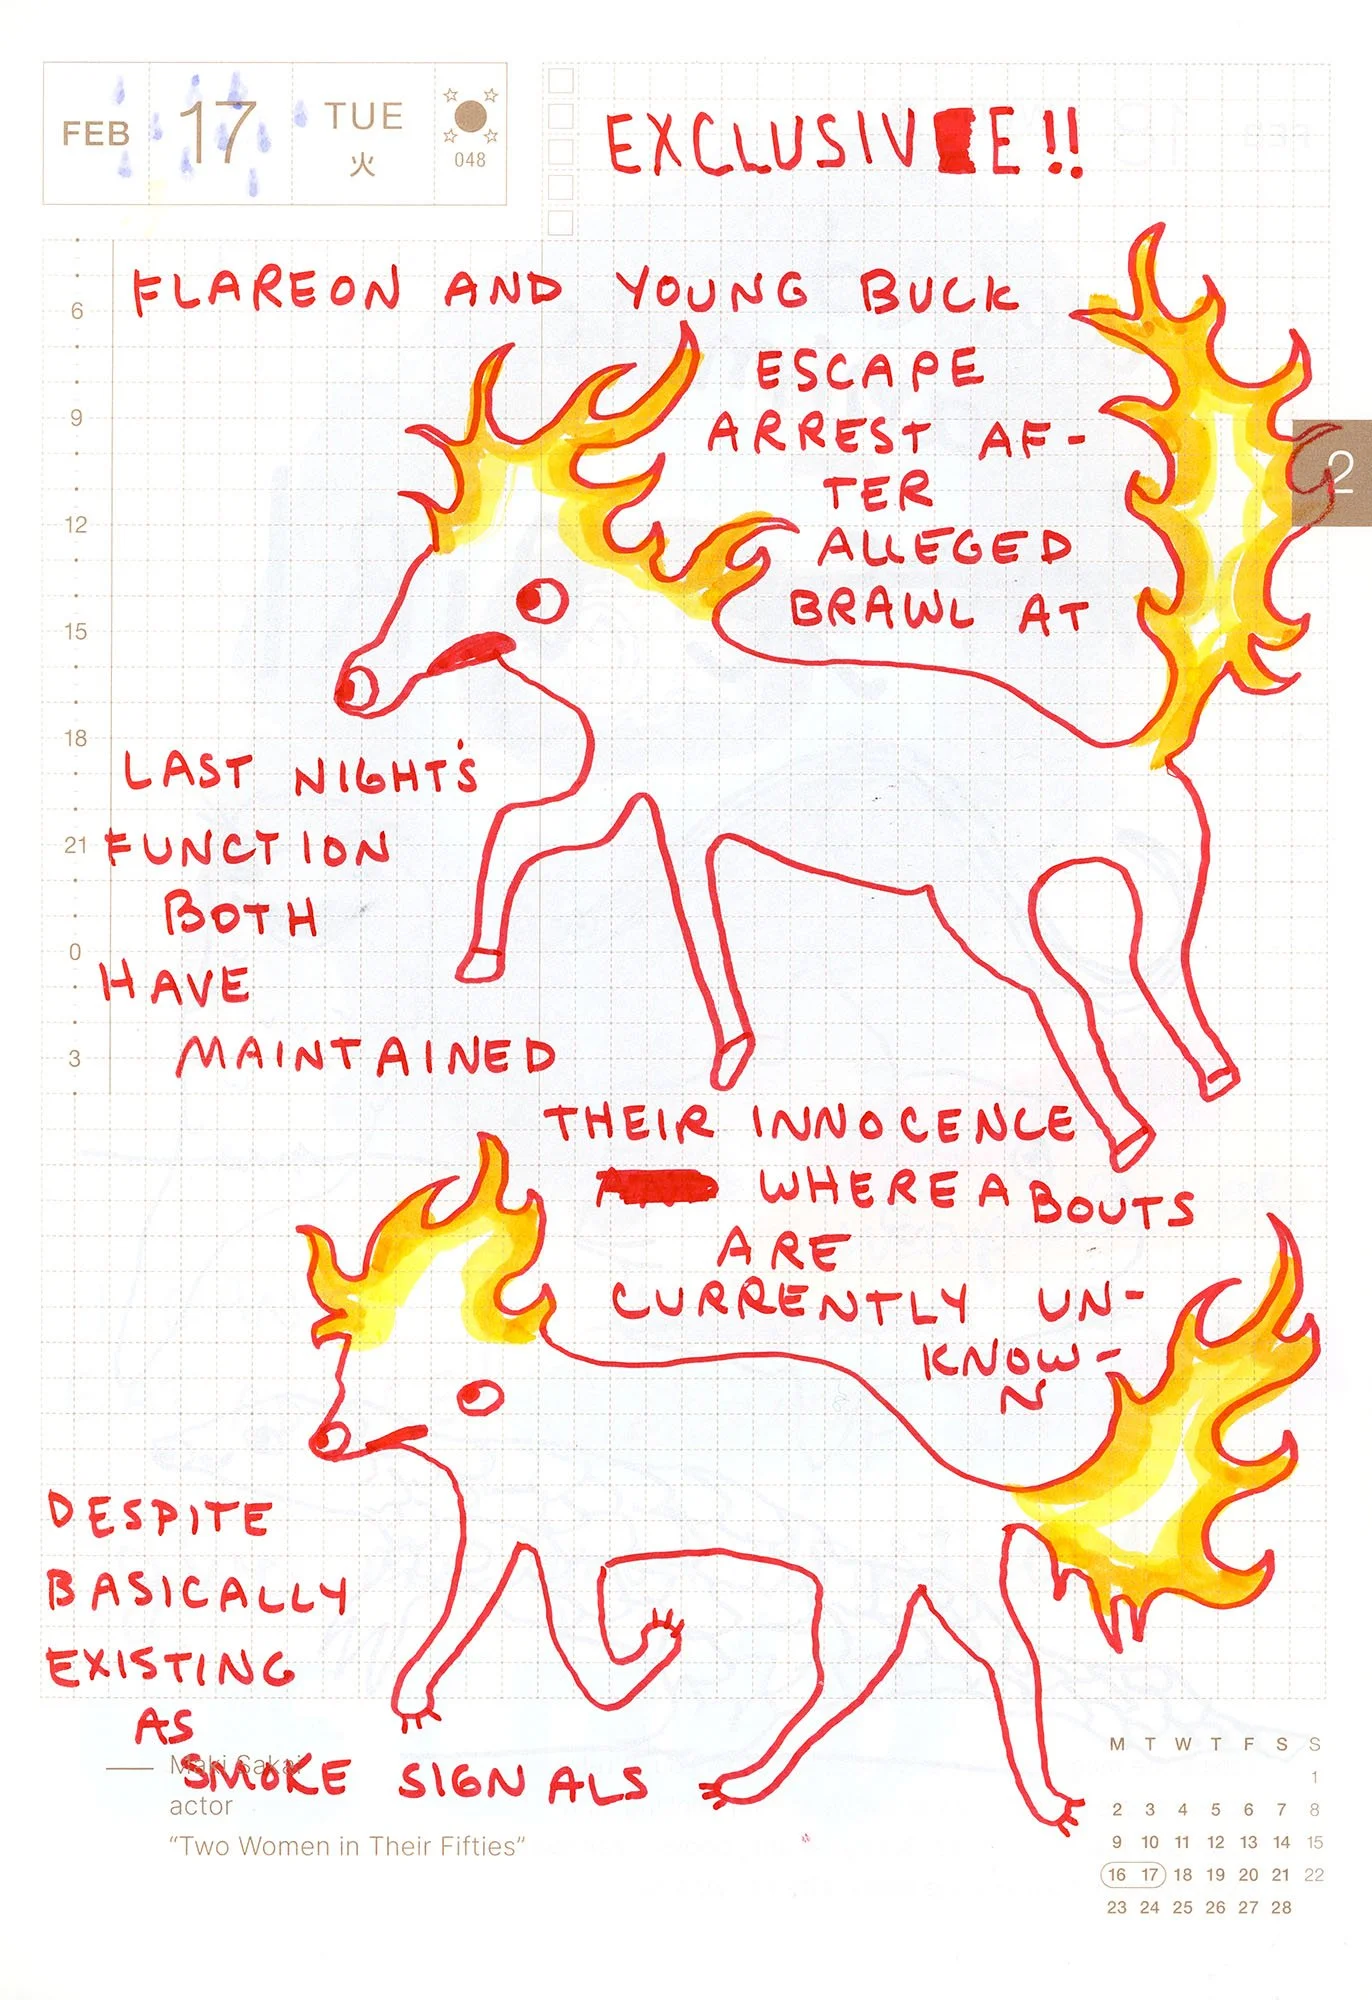 FEB 17 TUE
火
048
EXCLUSIVE!!
2
FLAREON AND YOUNG BUCK
ESCAPE
ARREST AF-
TER
ALLEGED
BRAWL AT
LAST NIGHT'S
FUNCTION
BOTH
HAVE
MAINTAINED
THEIR INNOCENCE
WHEREABOUTS
ARE
CURRENTLY UN-
KNOW-
N
DESPITE
BASICALLY
EXISTING
AS
SMOKE SIGNALS
6
9
12
15
18
21
0
3
Maki Sakai
actor
“Two Women in Their Fifties”
M T W T F S S
1
2 3 4 5 6 7 8
9 10 11 12 13 14 15
16 17 18 19 20 21 22
23 24 25 26 27 28